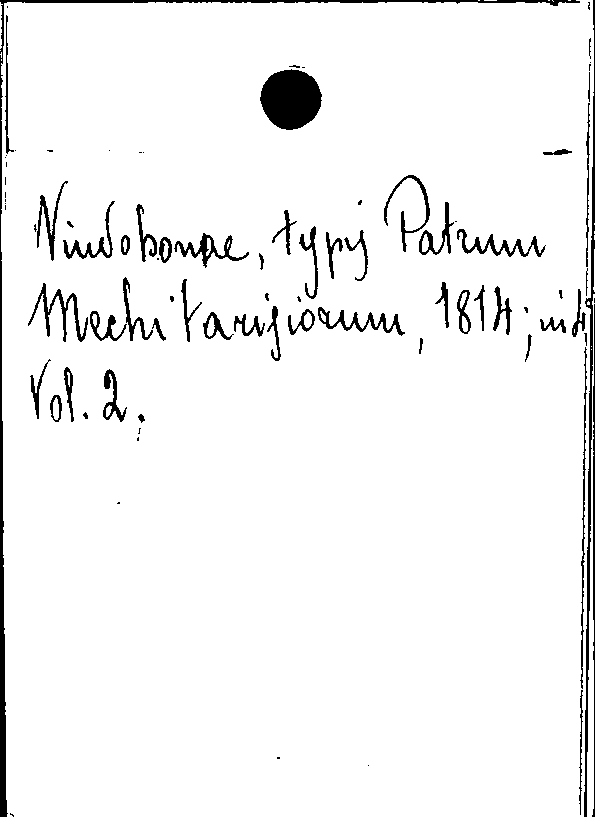 Vindobonae, typis Patrum
Mechitarisiorum, 1814; in 4°
Vol. 2.